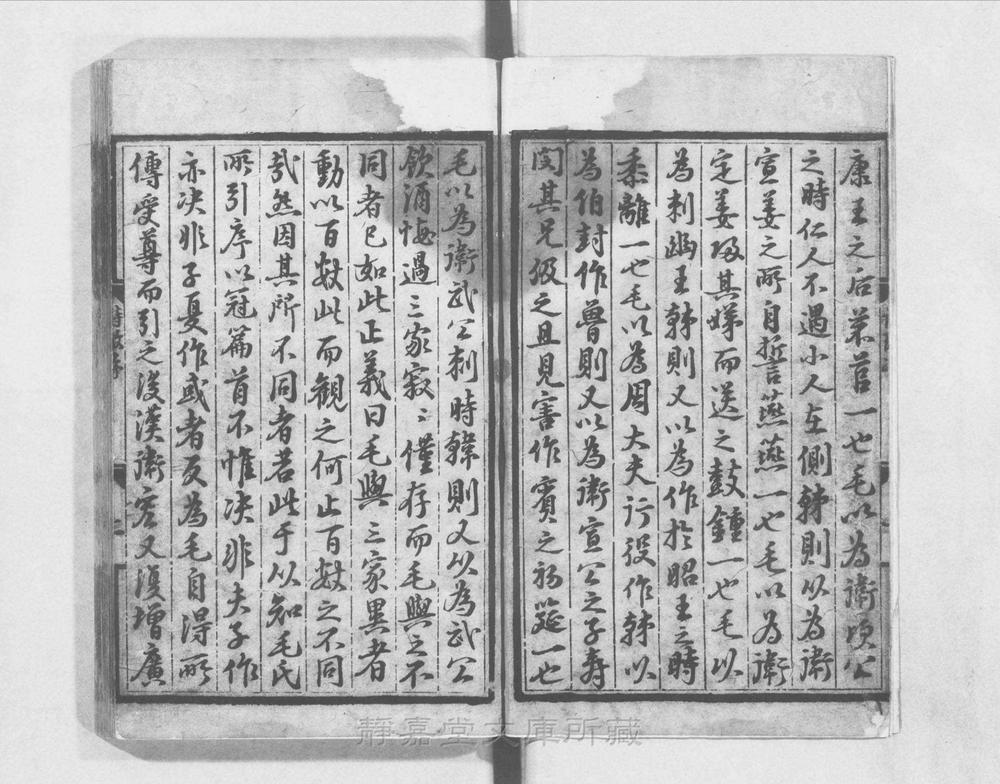 康王之后芣苢一也毛以為衛頃公
之時仁人不遇小人在側韓則以為衛
宣姜之所自誓燕燕一也毛以為衛
定姜歸其娣而送之鼓鍾一也毛以
為刺幽王韓則又以為作於昭王之時
黍離一也毛以為周大夫行役作韓以
為伯封作魯則又以為衛宣公之子壽
閔其兄伋之且見害作賓之初筵一也
毛以為衛武公刺時韓則又以為武公
飲酒悔過三家寂〻僅存而毛與之不
同者已如此正義曰毛與三家異者
動以百數此而觀之何止百數之不同
哉然因其所不同者若此于以知毛氏
所引序以冠篇首不惟决非夫子作
亦决非子夏作或者反為毛自得所
傳受尊而引之後漢衛宏又復增廣
靜嘉堂文庫所藏